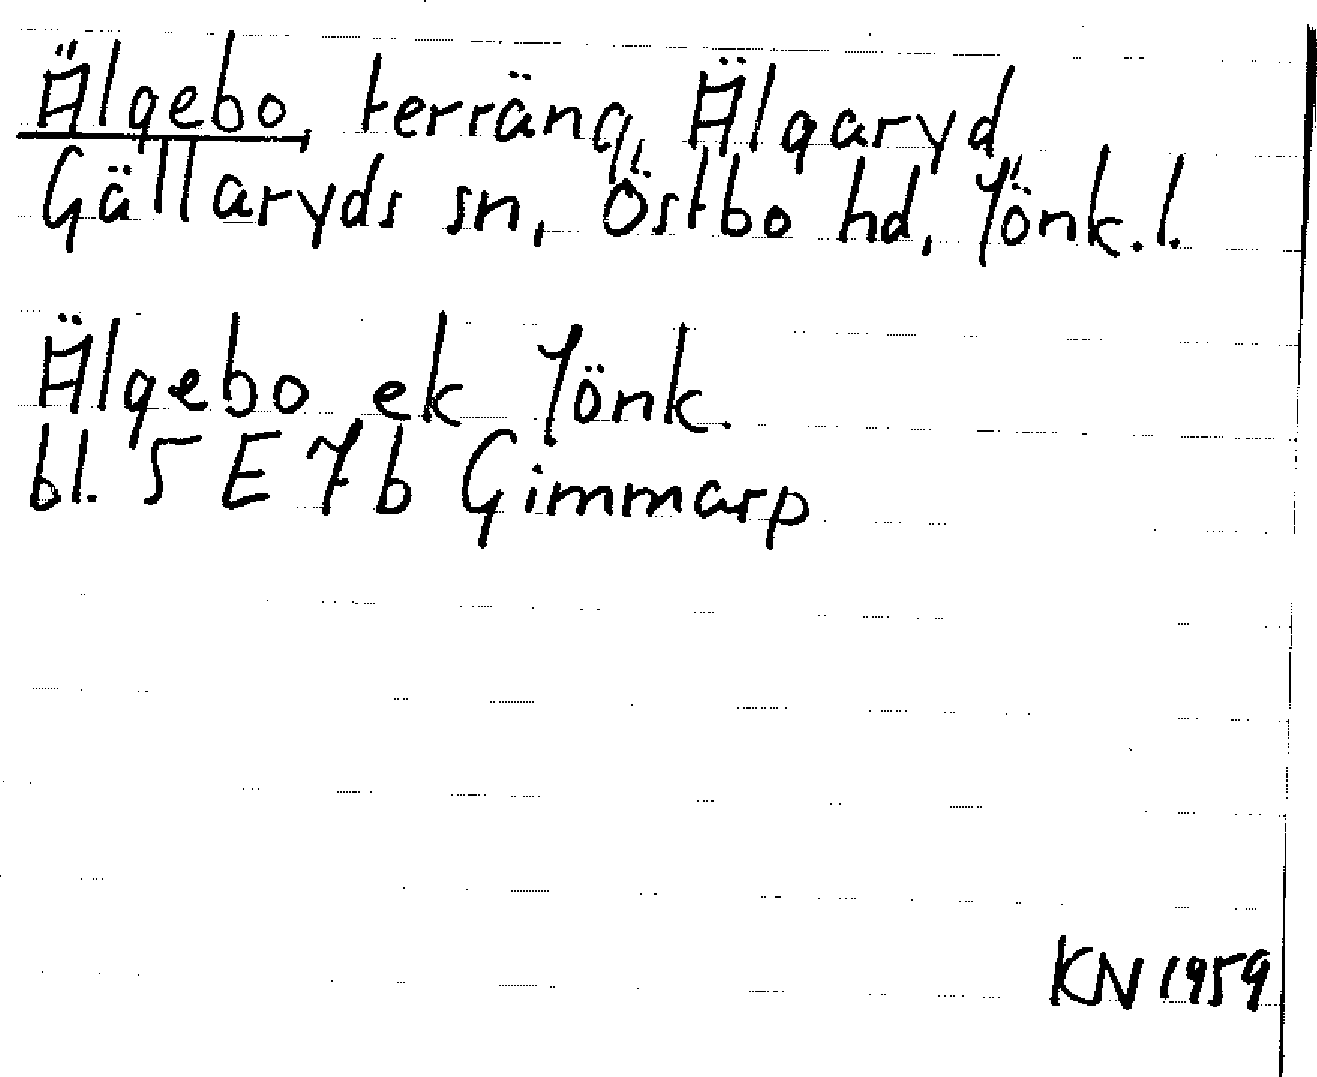 Älgebo terräng, Älgaryd,
Gällaryds sn, Östbo hd, Jönk.l.
Älgebo ek Jönk.
bl. 5 E 7b Gimmarp
KN 1959